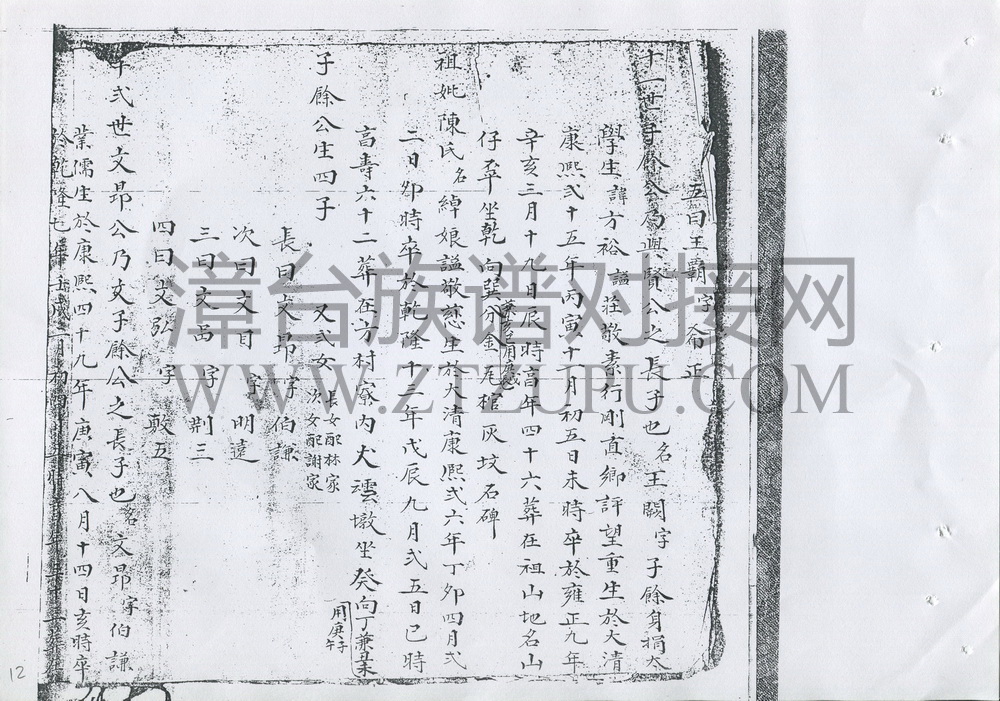 五曰王霸字 正
十一世子餘公為興賢公之長子也名王闕字子餘身捐太
學生諱方裕謚莊敬素行剛直鄉評望重生於大清
康熙弍十五年丙寅十一月初五日未時卒於雍正九年
辛亥三月十九日辰時高年四十六葬在祖山地名山
仔平坐乾向巽分金尾棺灰坟石碑
祖妣陳氏名綽娘謚敬慈生於大清康熙弍六年丁夘四月弍
二日夘時卒於乾隆十二年戊辰九月弍五日巳時
高壽六十二葬在方村寮內犬 墩坐癸向丁兼丑未
用庚子庚午
子餘公生四子 又弍女 長女配林家
次女配謝家
長曰文昂字伯謙
次曰文目字明遠
三曰文昌字荆三
四曰文弘字敦五
十弍世文昂公乃文子餘公之長子也名文昂字伯謙
業儒生於康熙四十九年庚寅八月十四日亥時卒
於乾隆七年壬戌二月初
漳台族谱对接网
WWW.ZTZUPU.COM
12